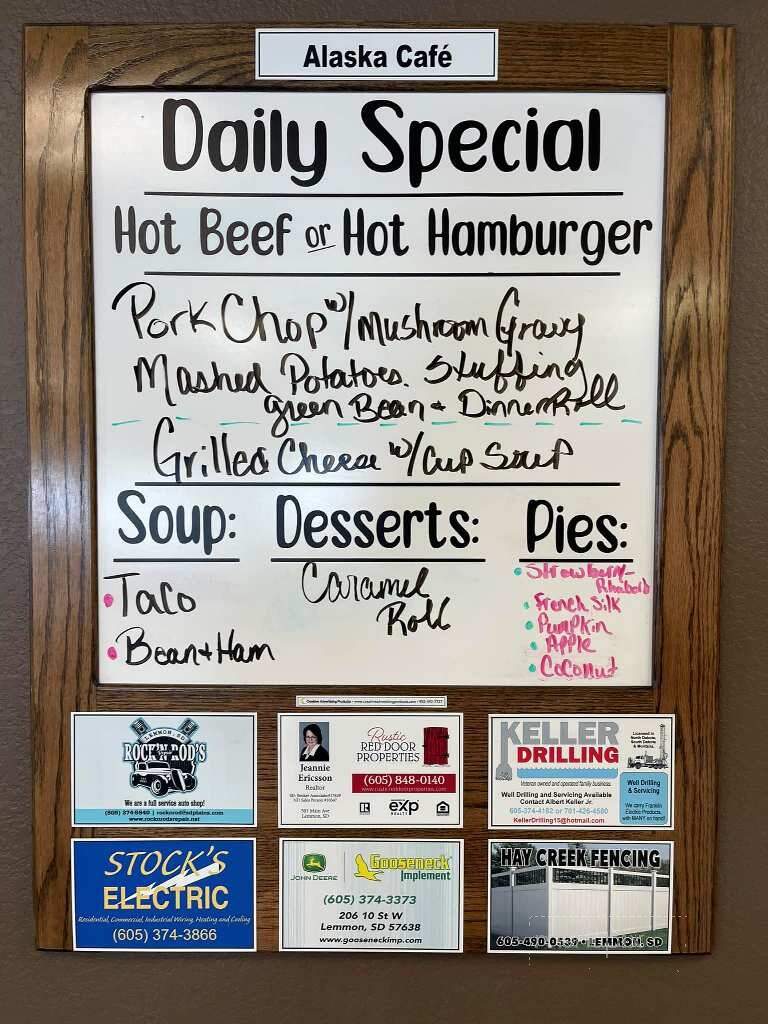 Alaska Café
Daily Special
Hot Beef or Hot Hamburger
Pork Chop w/ Mushroom Gravy
Mashed Potatoes. Stuffing
green Bean + Dinner Roll
Grilled Cheese w/ Cup Soup
Soup: Desserts: Pies:
• Taco
• Bean + Ham
Caramel
Roll
• Strawberry-
Rhubarb
• French Silk
• Pumpkin
• Apple
• Coconut
LEMMON, SD
ROCK'N ROD'S
We are a full service auto shop!
www.rocknrodsrepair.net
Jeannie
Ericsson
Realtor
Lemmon, SD
Rustic
RED DOOR
PROPERTIES
(605) 848-0140
exp
REALTY
KELLER
DRILLING
Licensed in
North Dakota,
South Dakota
& Montana.
Veteran owned and operated family business.
Well Drilling and Servicing Available
Contact Albert Keller Jr.
605-374-4182 or 701-426-4580
KellerDrilling15@hotmail.com
Well Drilling
& Servicing
We carry Franklin
Electric Products,
with MANY on hand!
STOCK'S
ELECTRIC
Residential, Commercial, Industrial Wiring, Heating and Cooling
(605) 374-3866
JOHN DEERE
Gooseneck
Implement
(605) 374-3373
206 10 St W
Lemmon, SD 57638
www.gooseneckimp.com
HAY CREEK FENCING
605-490-0539 • LEMMON, SD